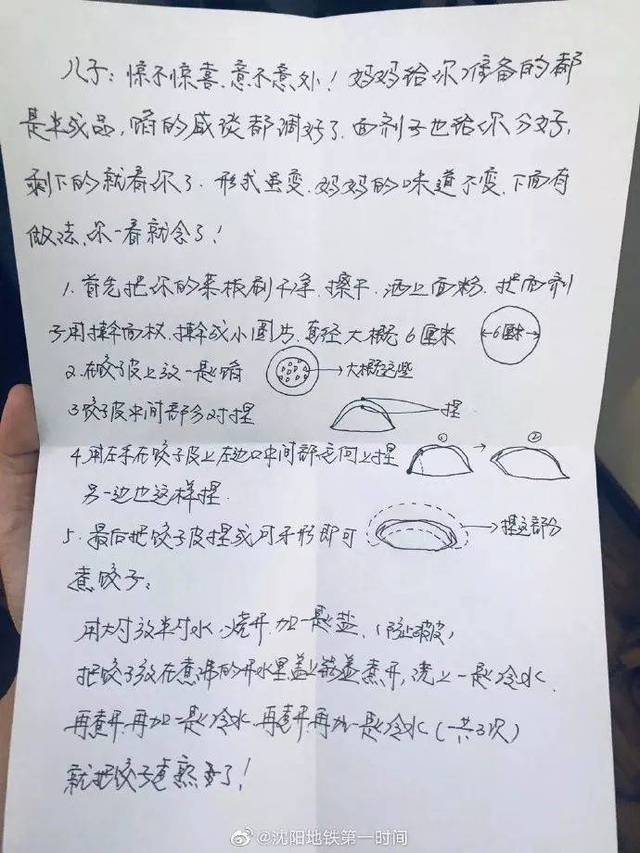 儿子：惊不惊喜、意不意外！妈妈给你准备的都
是半成品，馅的咸淡都调好了、面剂子也给你分好，
剩下的就看你了、形式虽变、妈妈的味道不变、下面有
做法、你一看就会了！
1、首先把你的菜板刷干净、擦干、洒上面粉、把面剂
子用擀面杖、擀成小圆片、直径大概6厘米
←6厘米→
2、在饺子皮上放一匙馅
大概这些
3、饺子皮中间部分对捏
捏
4、用左手在饺子皮上左边口中间部 向上捏
① ②
另一边也这样捏、
5、最后把饺子皮捏成月牙形即可
捏这部分
煮饺子：
用大 放半 水、烧开、加一匙盐、（防止破皮）
把饺子放在煮沸的开水里盖上锅盖煮开，浇上一匙冷水、
再煮开、再加一匙冷水、再煮开再加一匙冷水（一共3次）
就把饺子煮熟了！
@沈阳地铁第一时间